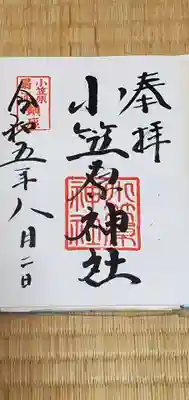 奉拝
小笠原神社
小笠原神社
小笠原
令和五年八月二日